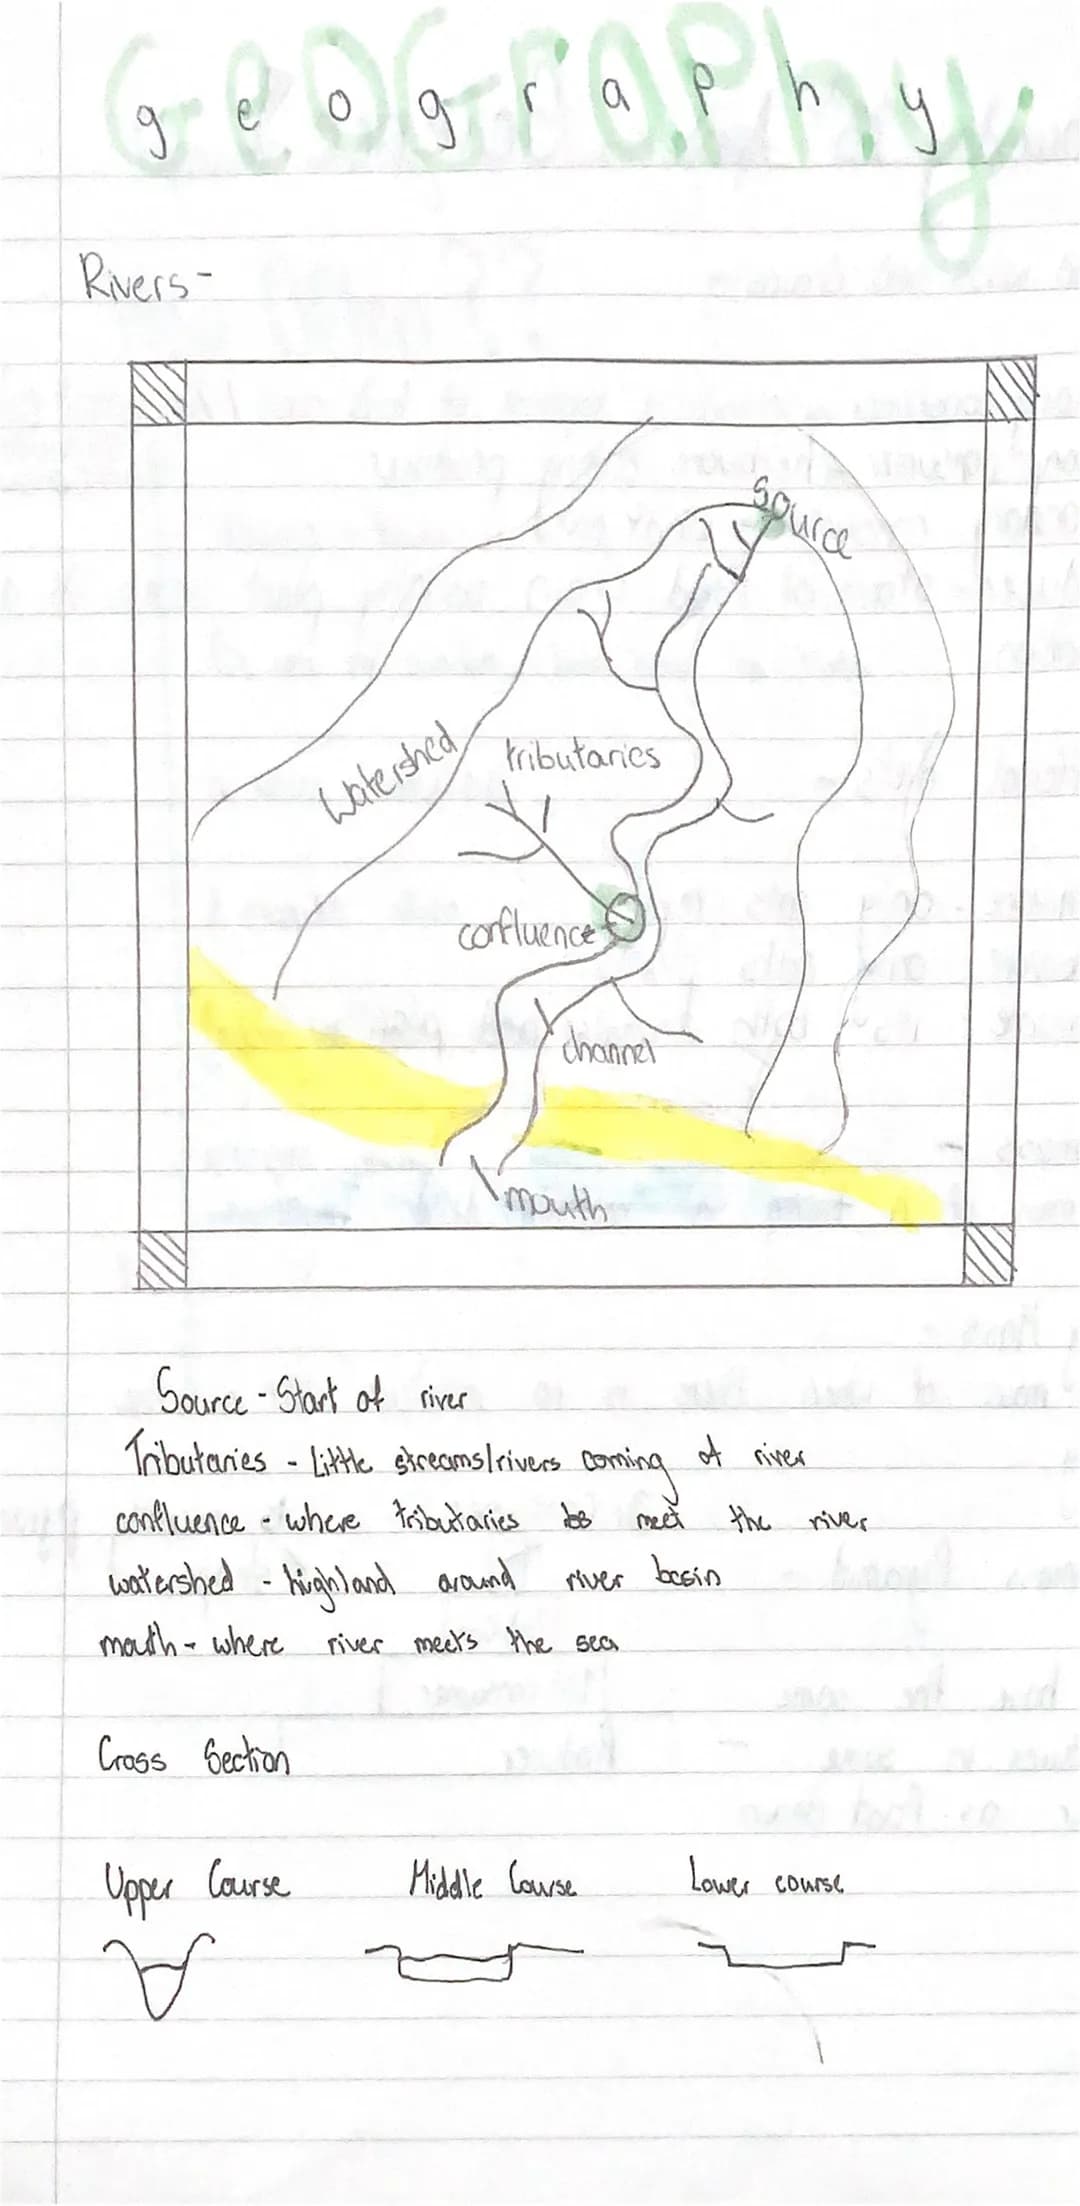 geography
Rivers-
source
Watershed
tributaries
confluence
channel
mouth
Source - Start of river
Tributaries - Little streams/rivers coming of river
confluence - where tributaries meet the river
watershed - highland around river basin
mouth - where river meets the sea
Cross Section
Upper Course Middle Course Lower course